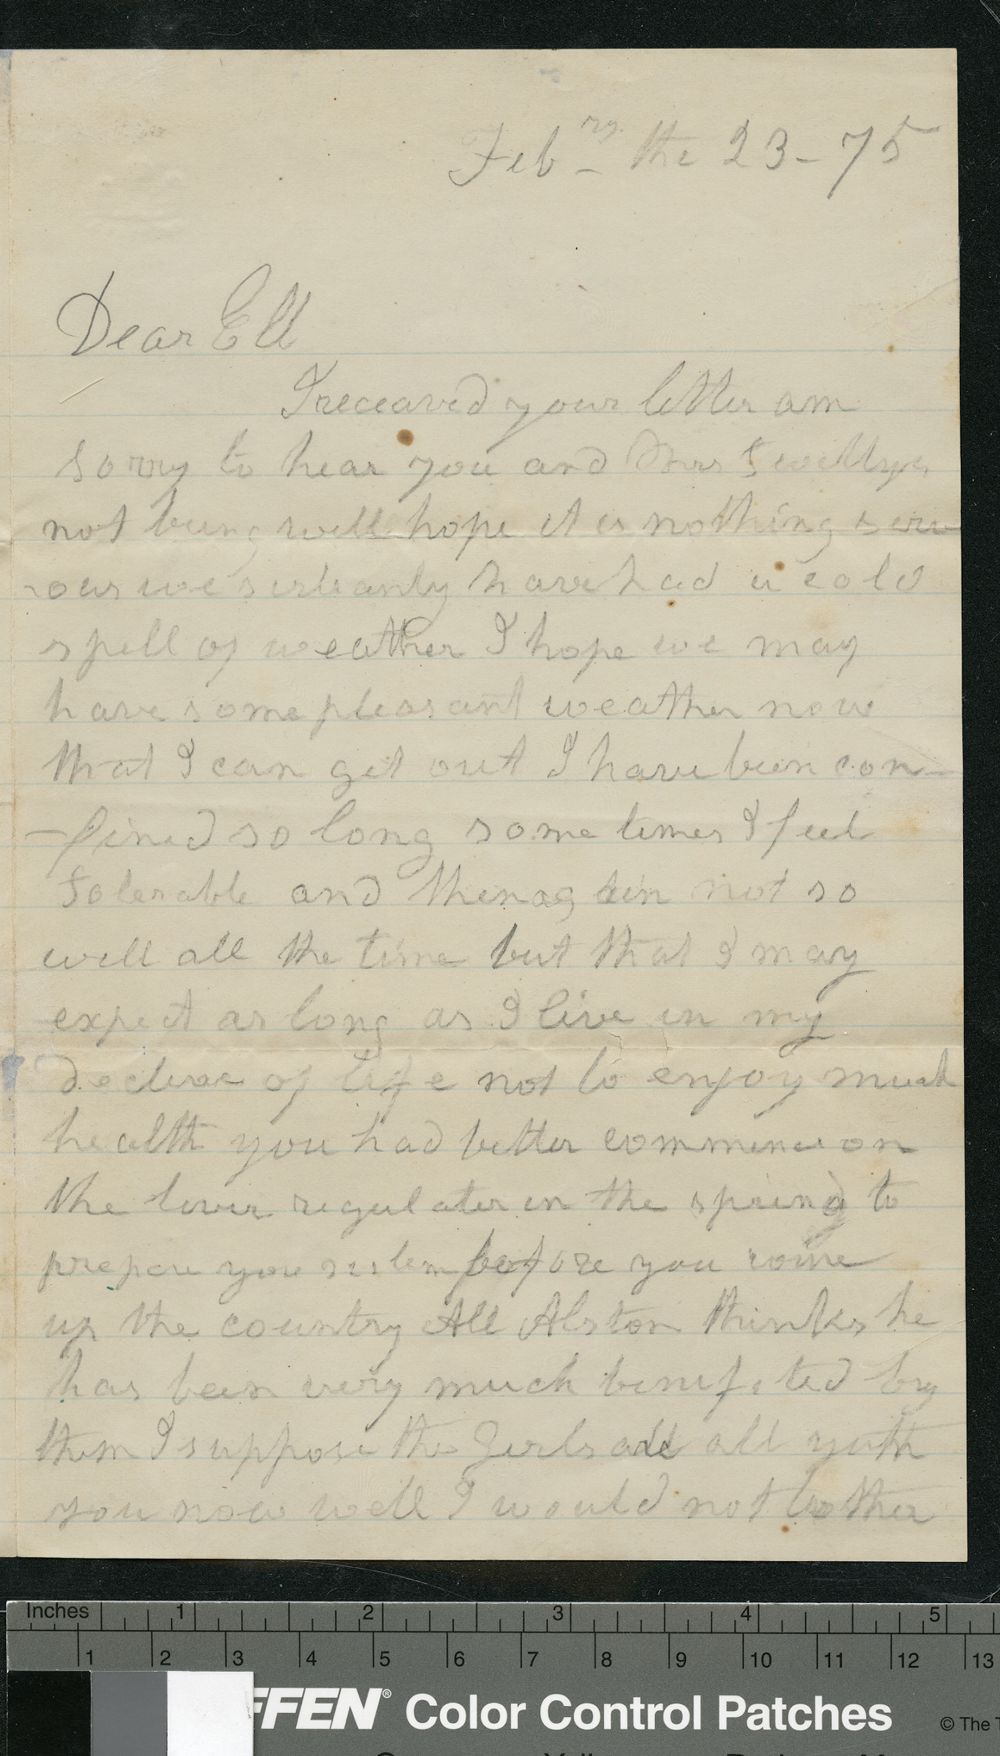 Feb ry the 23 - 75
Dear Ell
I receaved your letter am
sorry to hear you and Mrs
not being well hope it is nothing seri
-ous we sirtianly have had a cold
spell of weather I hope we may
have some pleasant weather now
that I can get out I have been con-
-fined so long some times I feel
tolerable and then again not so
well all the time but that I may
expect as long as I live in my
decline of life not to enjoy much
health you had better commence on
the liver regulater in the spring to
prepare you sistem before you come
up the country All Alston thinks he
has been very much benifited by
them I suppose the Girls are all with
you now well I would not bother
Inches 1 2 3 4 5
1 2 3 4 5 6 7 8 9 10 11 12 13
FFEN® Color Control Patches
© The T